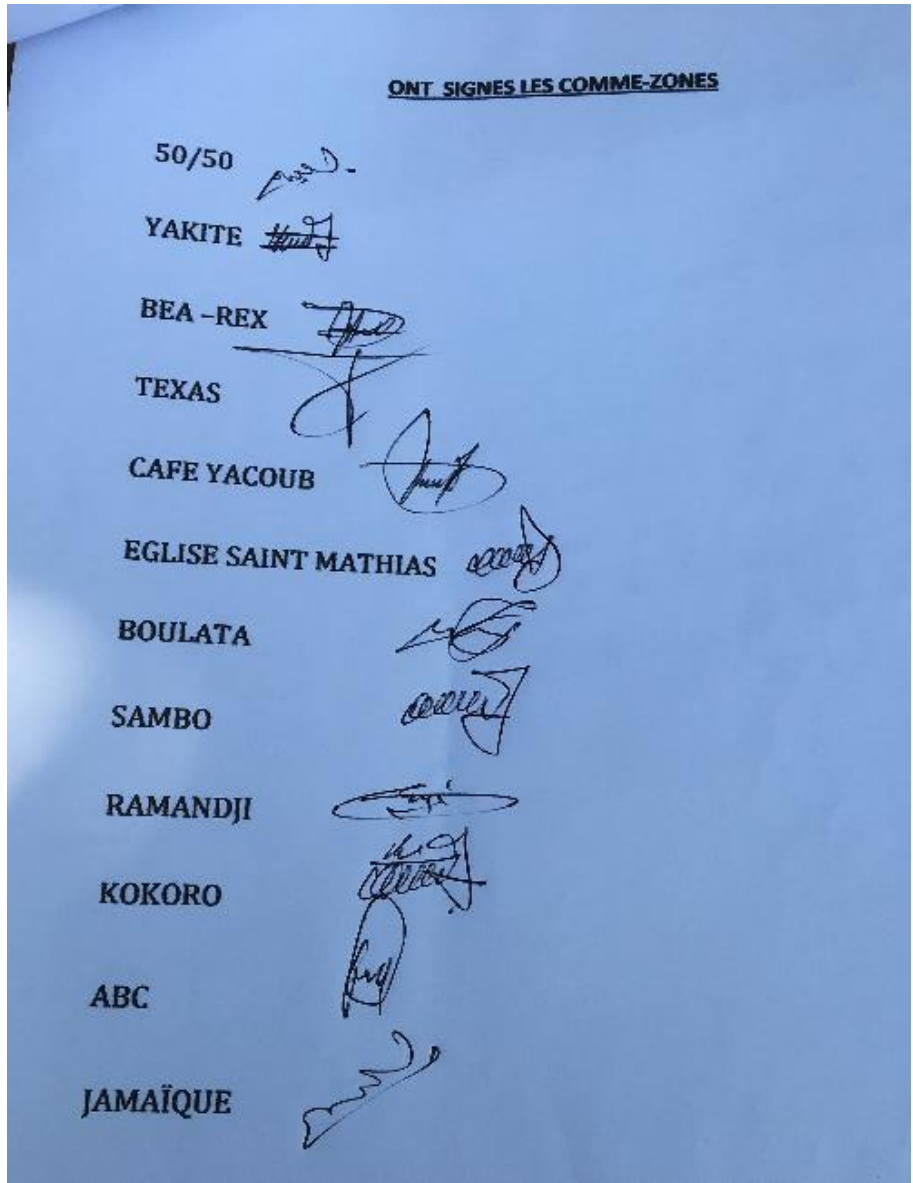 ONT SIGNES LES COMME-ZONES
50/50
YAKITE
BEA –REX
TEXAS
CAFE YACOUB
EGLISE SAINT MATHIAS
BOULATA
SAMBO
RAMANDJI
KOKORO
ABC
JAMAÏQUE